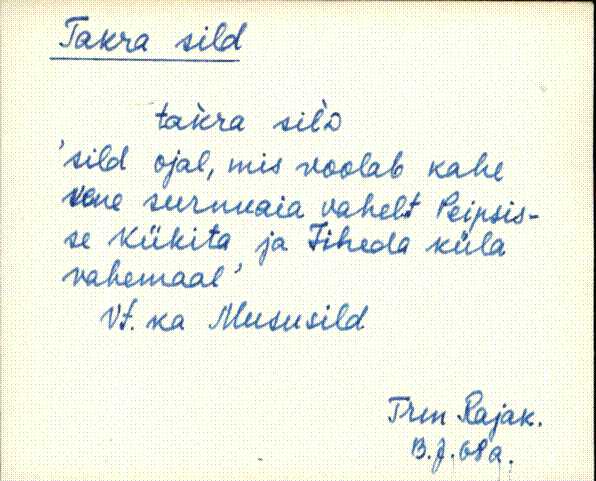 Takra sild
tak̀ra sil̀D
'sild ojal, mis voolab kahe
vene surnuaia vahelt Peipsis-
se Kükita ja Tiheda küla
vahemaal'
Vt. ka Mususild
Trm Rajak.
B.J. 68a.